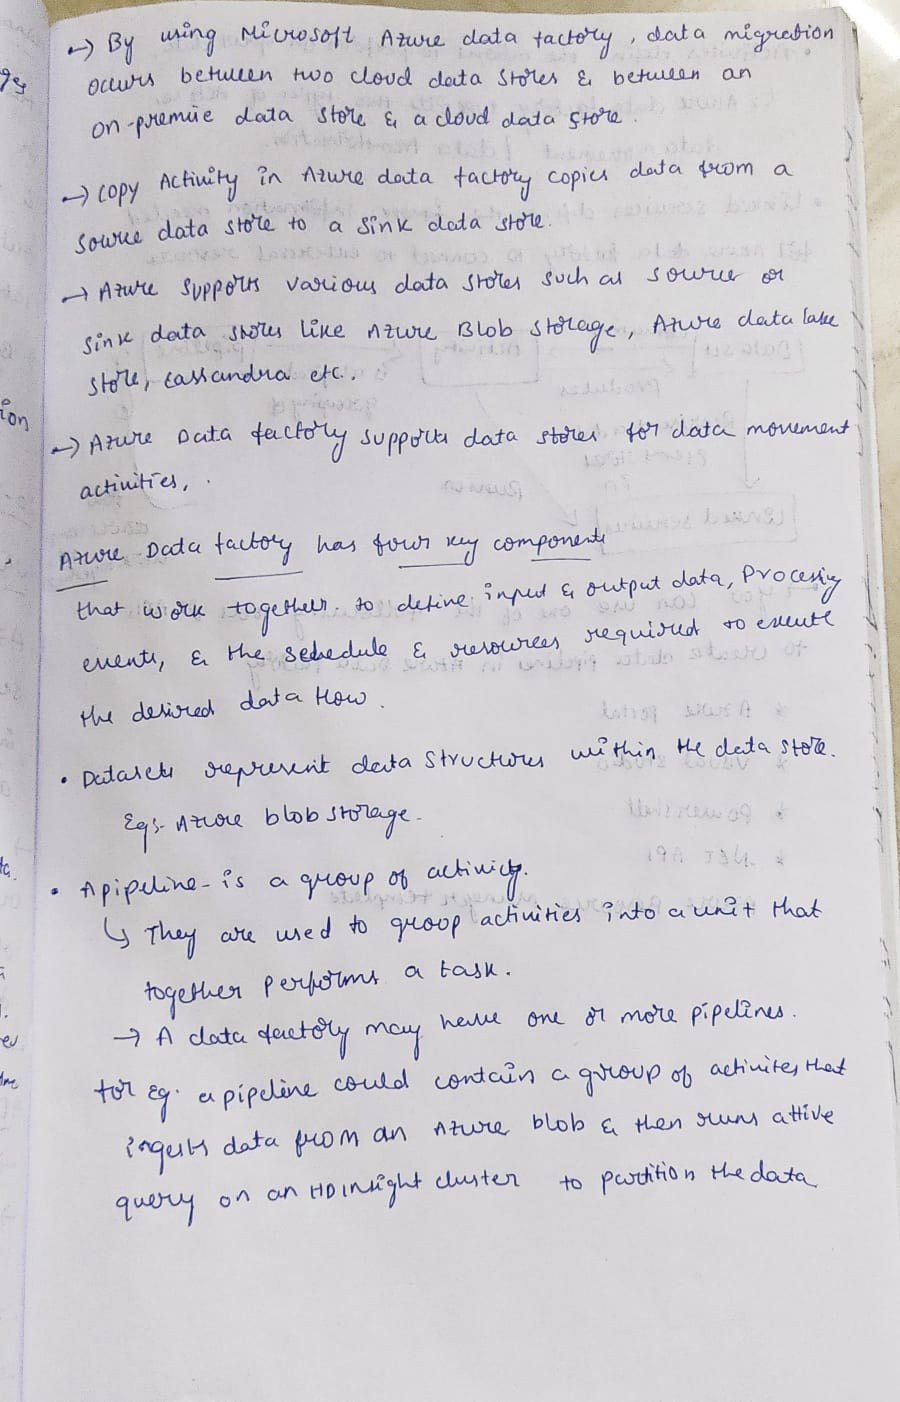 → By using Microsoft Azure data factory, data migration
occurs between two cloud data stores & between an
on-premise data store & a cloud data store.
→ Copy Activity in Azure data factory copies data from a
source data store to a sink data store.
→ Azure supports various data stores such as source or
sink data stores like Azure Blob storage, Azure data lake
store, cassandra etc.
→ Azure Data factory supports data stores for data movement
activities,
Azure Data factory has four key components
that work together to define input & output data, Processing
events, & the schedule & resources required to execute
the desired data flow.
• Datasets represent data structures within the data store.
Eg:- Azure blob storage.
• A pipeline - is a group of activity.
↳ They are used to group activities into a unit that
together performs a task.
→ A data factory may have one or more pipelines.
for Eg. a pipeline could contain a group of activites that
ingests data from an Azure blob & then runs a Hive
query on an HDInsight cluster to partition the data